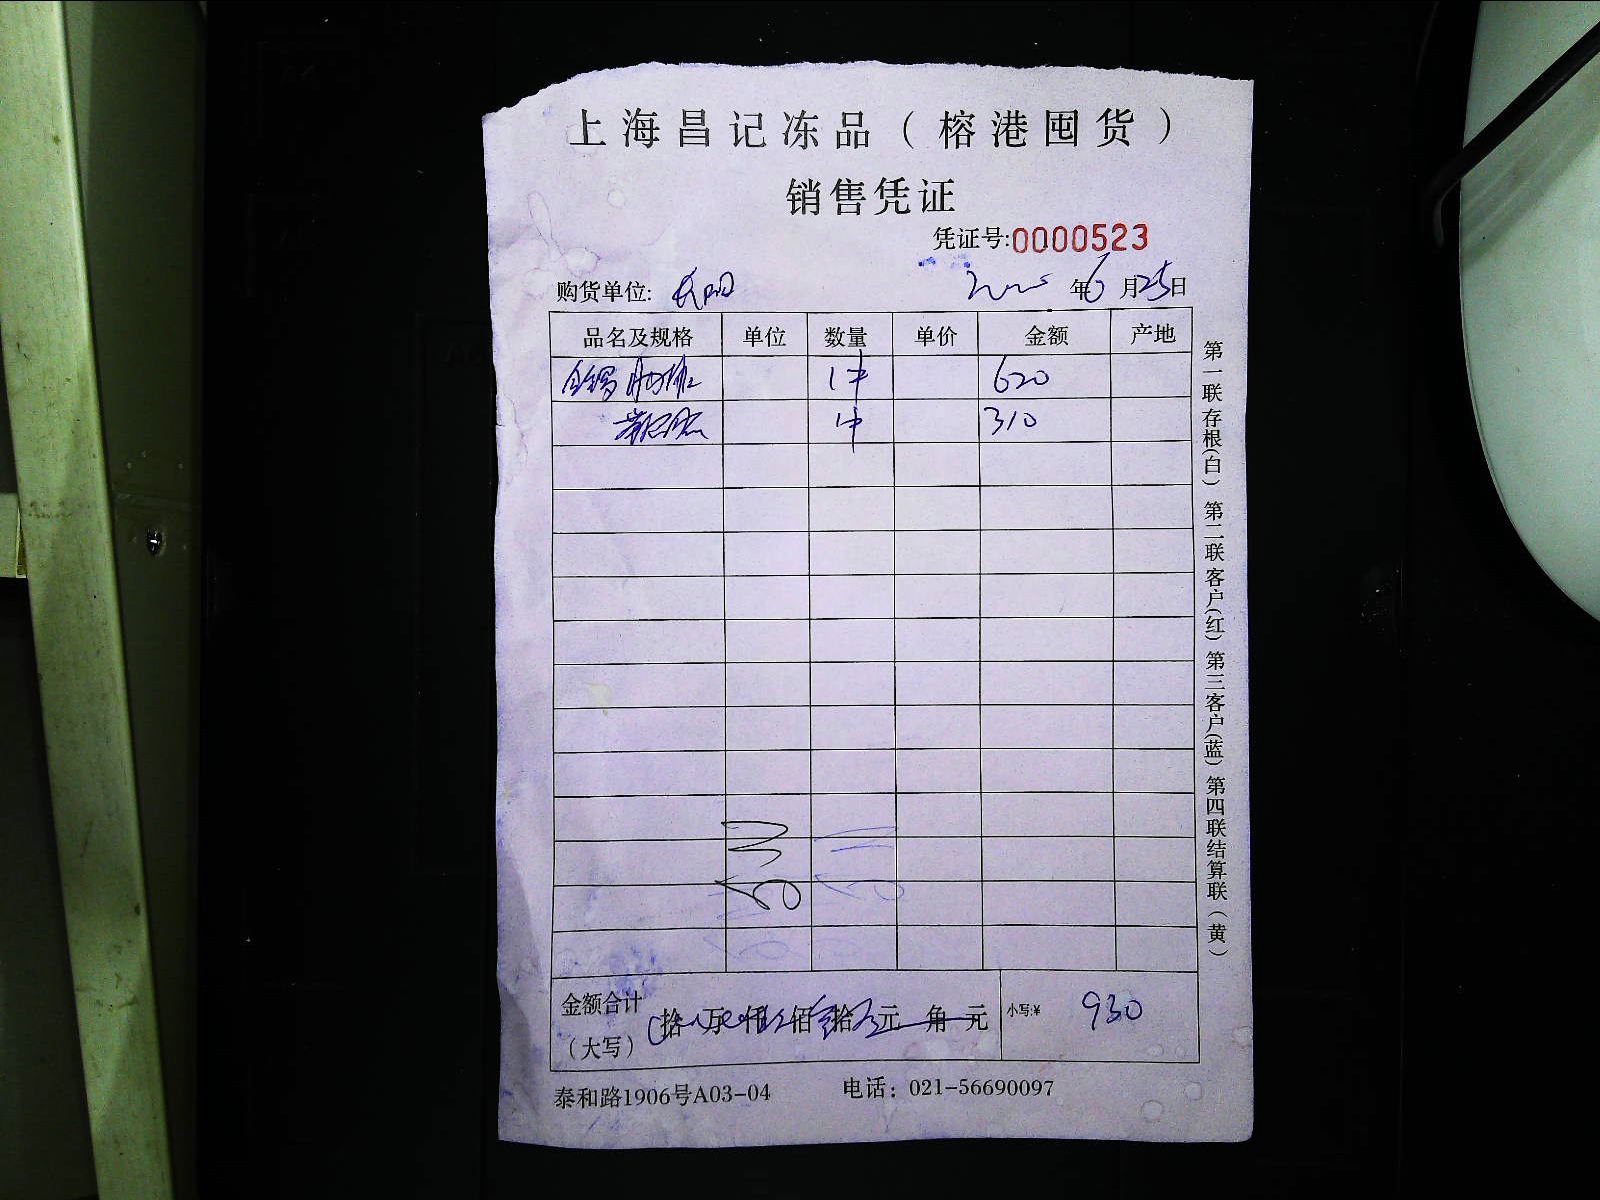 上海昌记冻品（榕港囤货）
销售凭证
凭证号:0000523
购货单位: 年6月25日
品名及规格 单位 数量 单价 金额 产地
1件 620
1件 310
金额合计 拾 万 仟 佰 拾 元 角 元 小写:¥ 930
（大写）
泰和路1906号A03-04 电话：021-56690097
第一联存根(白) 第二联客户(红) 第三客户(蓝) 第四联结算联(黄)